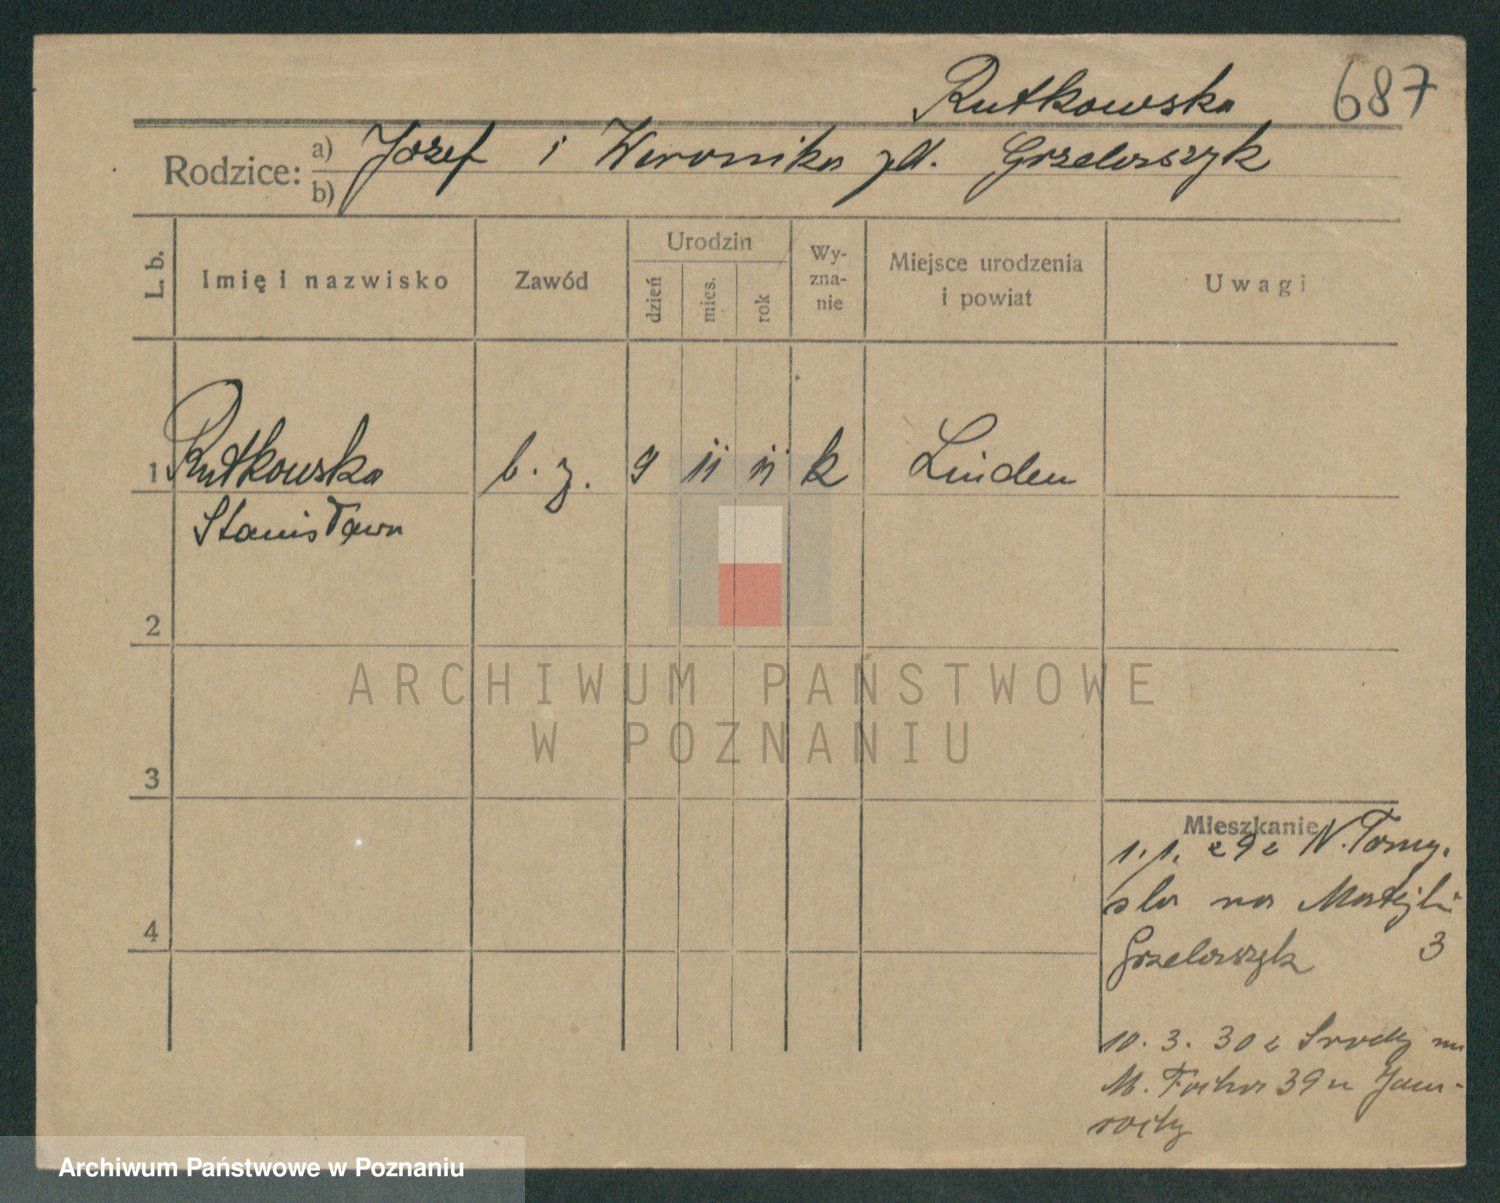 Rutkowska 687
Rodzice: a) Józef i Weronika zd. Grzelaszyk
b)
L. b. Imię i nazwisko Zawód Urodzin dzień mies. rok Wyznanie Miejsce urodzenia i powiat Uwagi
1 Rutkowska b. z. 9 11 11 k Linden
Stanisława
2
ARCHIWUM PAŃSTWOWE
W POZNANIU
3
Mieszkanie
1.1. 29 z N. Tomy.
sla na Matejki
Grzelaszyk 3
4
10. 3. 30 z Środy na
M. Focha 39 u
Archiwum Państwowe w Poznaniu